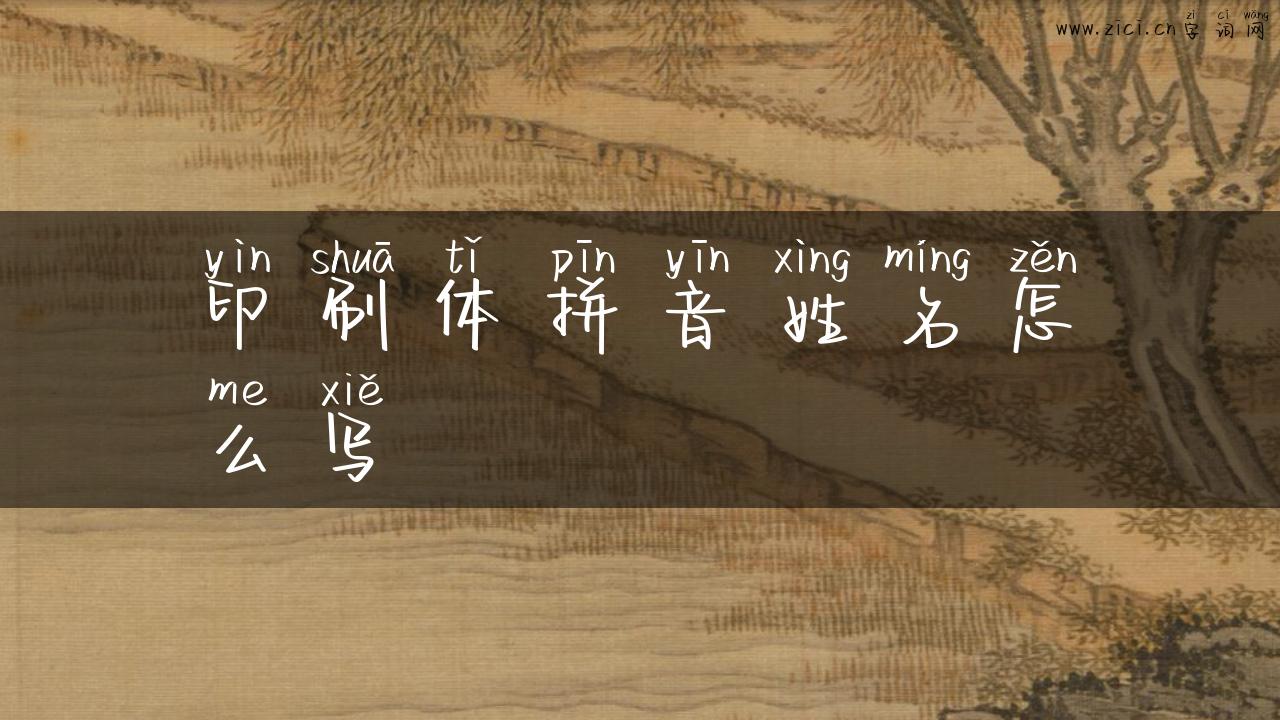 zì cí wǎng
www.zici.cn字词网
yìn shuā tǐ pīn yīn xìng míng zěn
印刷体拼音姓名怎
me xiě
么写